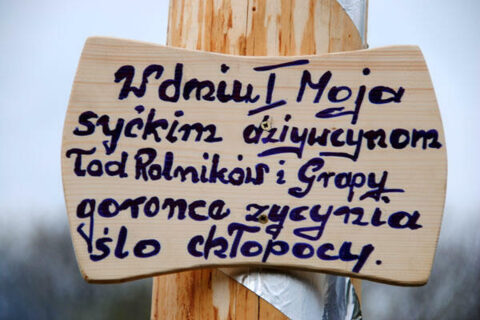 W dniu I Moja
syćkim dziywcynom
łod Rolników i Grapy
goronce zycynia
ślo chłopocy.